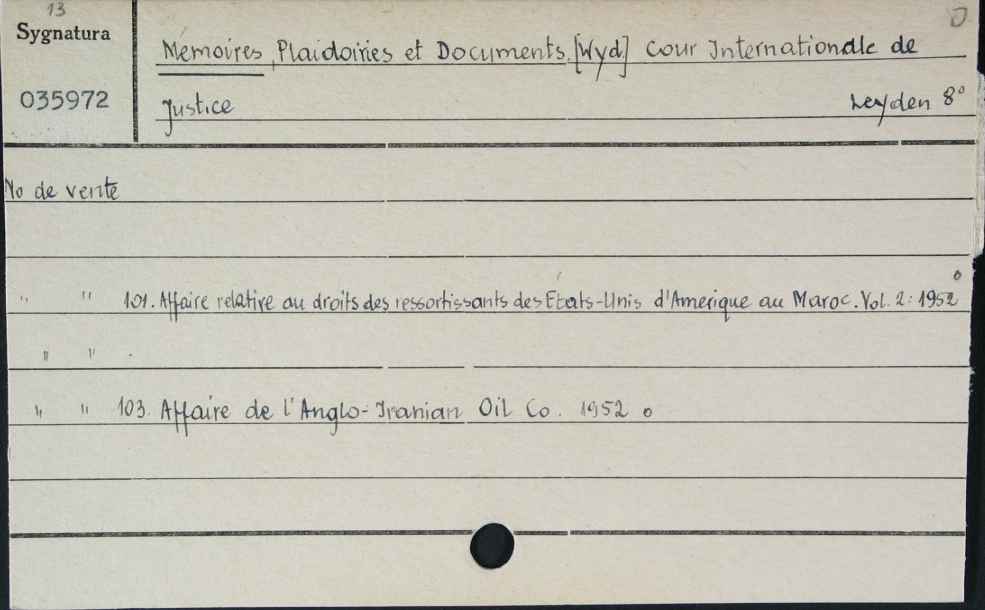 13
Sygnatura
035972
Mémoires, Plaidoiries et Documents. [Wyd] Cour Internationale de
Justice Leyden 8°
No de vente
" " 101. Affaire relative au droits des ressortissants des États-Unis d'Amerique au Maroc. Vol. 2: 1952 o
" " .
" " 103. Affaire de l'Anglo-Iranian Oil Co. 1952 o